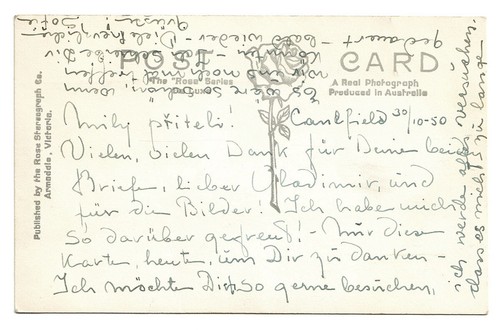 POST CARD
The "Rose" Series
De Luxe
A Real Photograph
Produced in Australia
Published by the Rose Stereograph Co.
Armadale, Victoria.
Milý příteli! Caulfield 30/10-50
Vielen, vielen Dank für Deine beiden
Briefe, lieber Vladimir, und
für die Bilder! Ich habe mich
so darüber gefreut! - Nur diese
Karte, heute, um Dir zu danken -
Ich möchte Dich so gerne besuchen,
ich werde alles versuchen,
dass es nicht zu lange
gedauert - bald wieder - Viele herzliche
Es wäre so schön, wenn
wir uns noch treffen